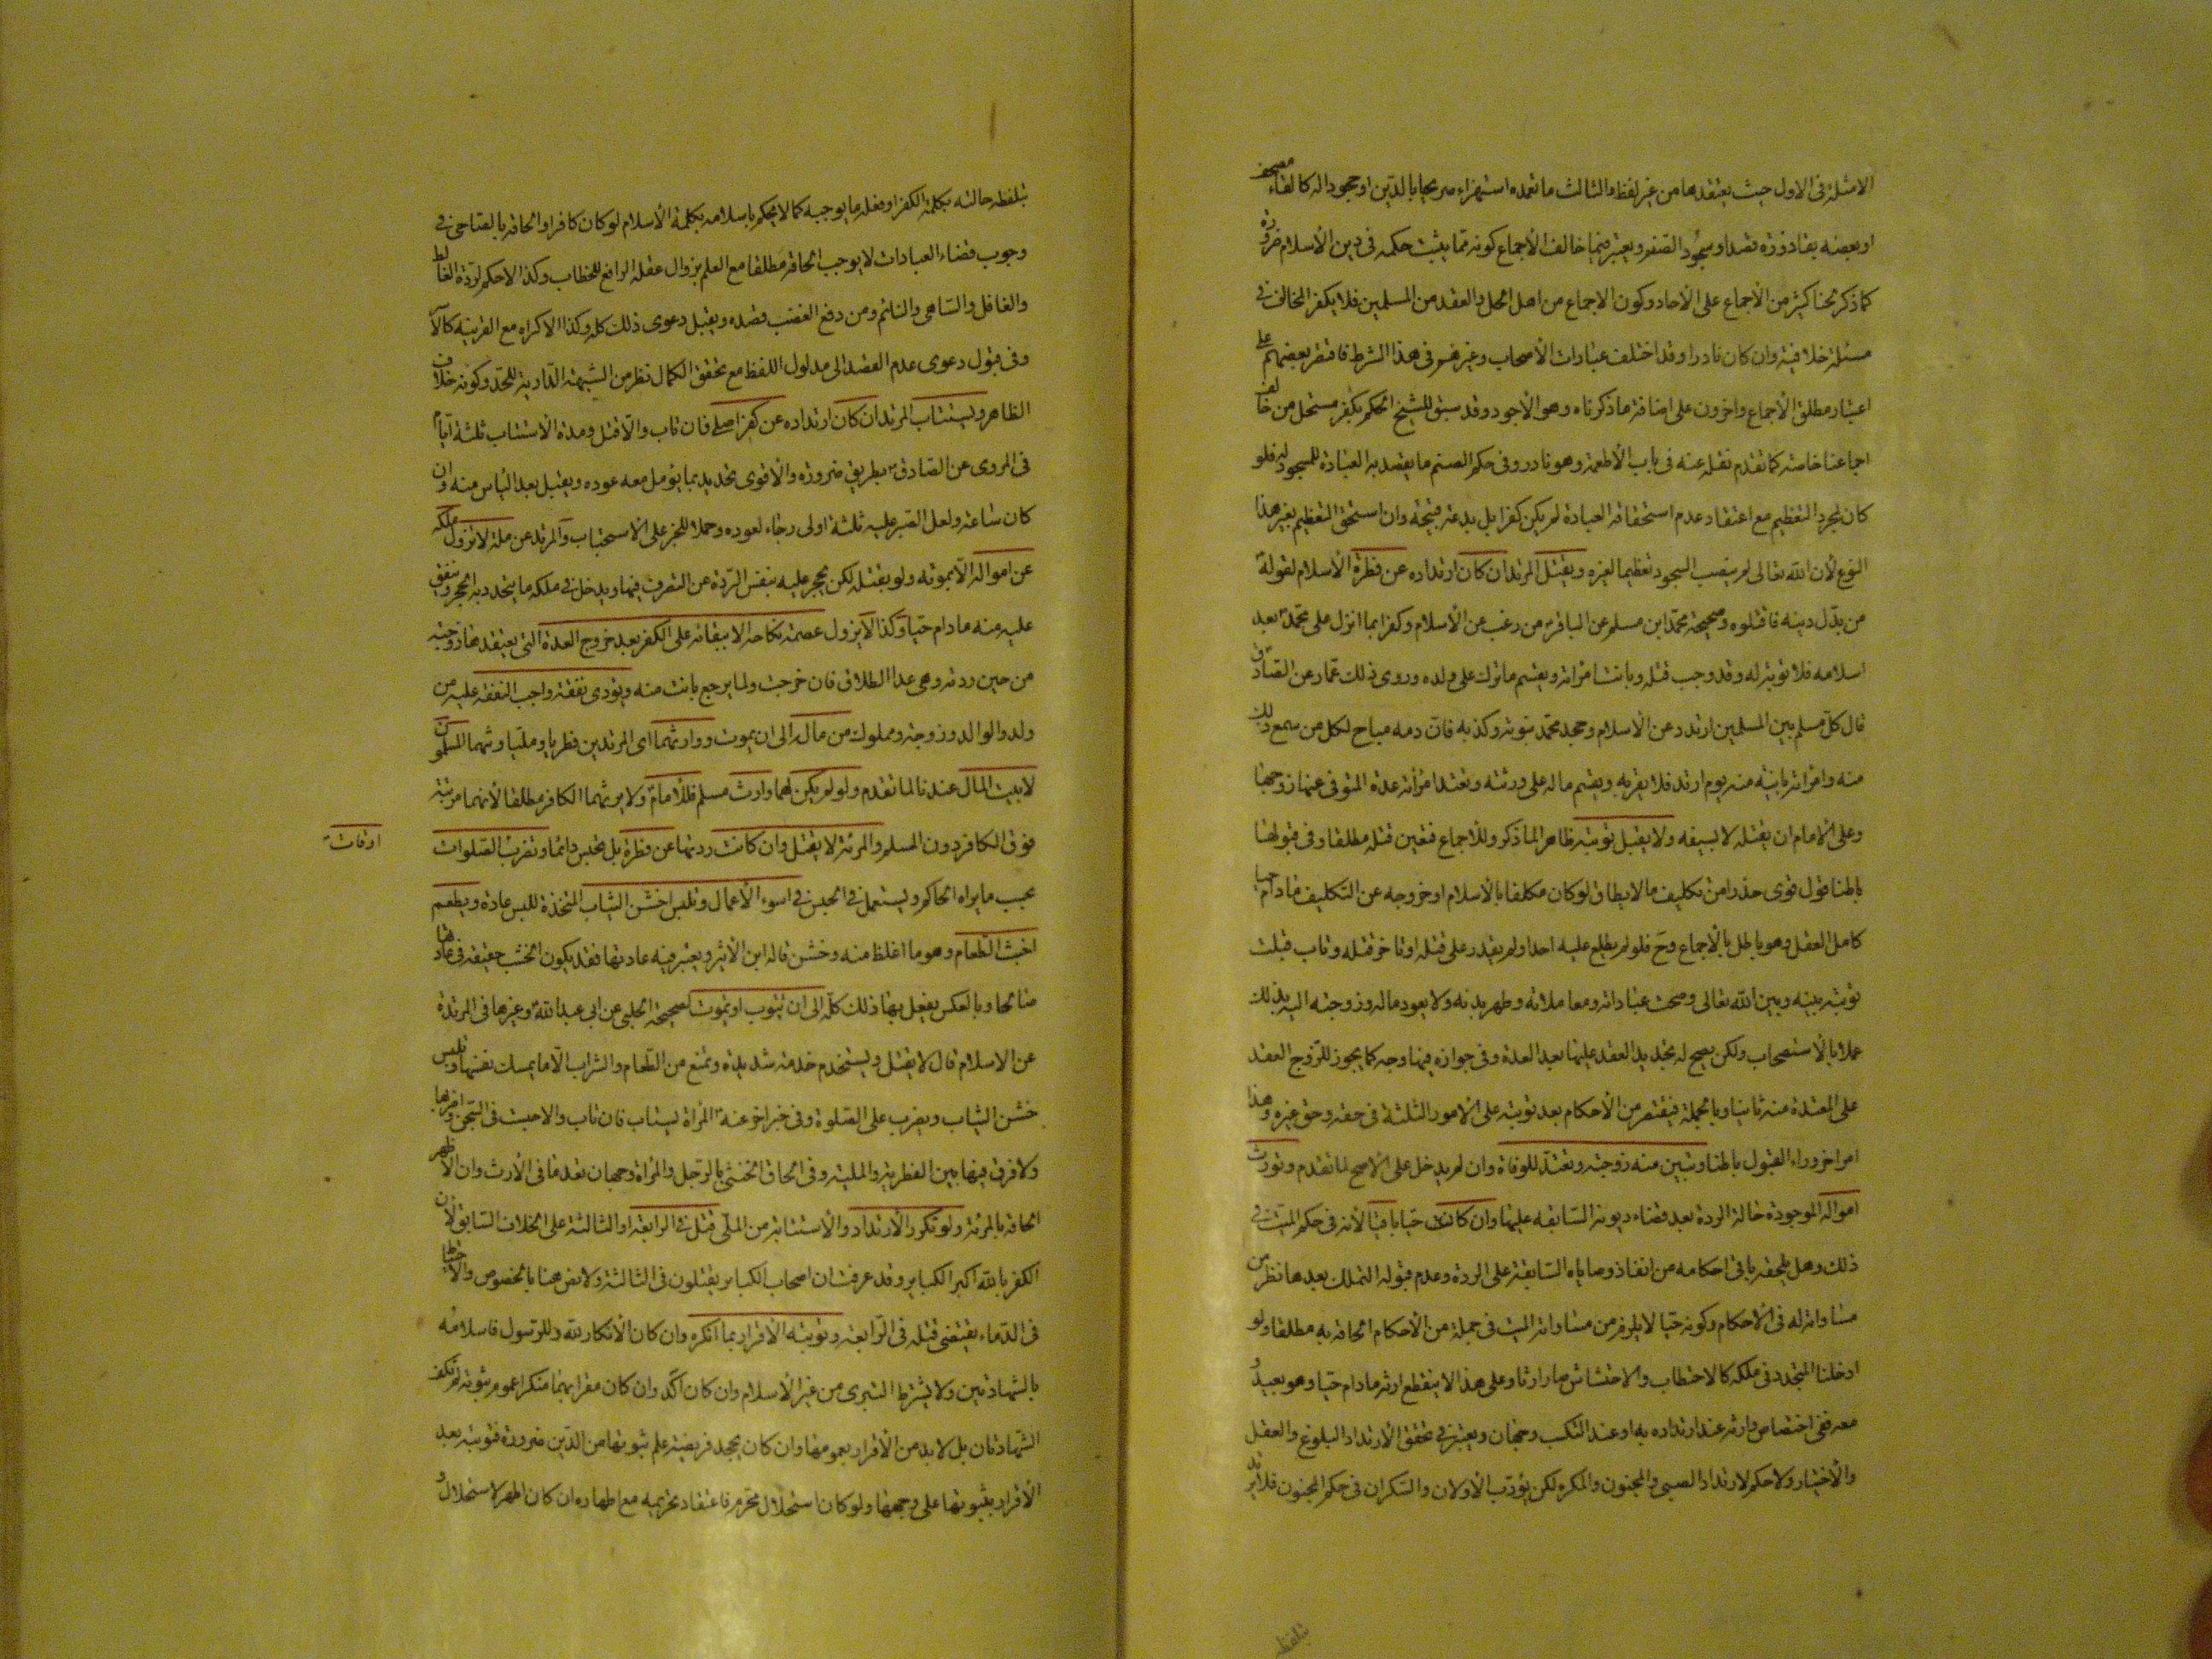 الامثلة فى الاول حيث يعتقدها من غير لفظ والثالث ما تعمده استهزاء صريحا بالدين او جحودا له كالقاء مصحف
او بعضه بقاذورة قصدا وسجود الصنم ويعتبر فيما خالف الاجماع كونه مما يثبت حكمه فى دين الاسلام ضرورة
كما ذكر لخفاء كثير من الاجماع على الاحاد وكون الاجماع من اهل الحل والعقد من المسلمين فلا يكفر المخالف فى
مسئلة خلافية وان كان نادرا وقد اختلف عبارات الاصحاب وغيرهم فى هذا الشرط فاقتصر بعضهم على
اعتبار مطلق الاجماع واخرون على اضافة ما ذكرناه وهو الاجود وقد سبق للشيخ الحكم بكفر مستحل من خالف
اجماعنا خاصة كما تقدم نقله عنه فى باب الاطعمة وهو نادر وفى حكم الصنم ما يقصد به العبادة للمسجود له فلو
كان لمجرد التعظيم مع اعتقاد عدم استحقاقه العبادة لم يكن كفرا بل بدعة قبيحة وان استحق التعظيم بغير هذا
النوع لان الله تعالى لم ينصب السجود تعظيما لغيره ويقتل المرتد ان كان ارتداده عن فطرة الاسلام لقوله
من بدل دينه فاقتلوه وصحيحة محمد ابن مسلم عن الباقر من رغب عن الاسلام وكفر بما انزل على محمد بعد
اسلامه فلا توبة له وقد وجب قتله وبانت امراته ويقسم ما ترك على ولده وروى ذلك عمار عن الصادق
قال كل مسلم بين المسلمين ارتد عن الاسلام وجحد محمد نبوته وكذبه فان دمه مباح لكل من سمع ذلك
منه وامراته باينة منه يوم ارتد فلا يقربه ويقسم ماله على ورثته وتعتد امراته عدة المتوفى عنها زوجها
وعلى الامام ان يقتله لا يستتيبه ولا يقبل توبته ظاهرا لما ذكر وللاجماع فتعين قتله مطلقا وفى قبولها
باطنا قول قوى حذرا من تكليف ما لا يطاق لو كان مكلفا بالاسلام او خروجه عن التكليف مادام حيا
كامل العقل وهو باطل بالاجماع وح فلو لم يطلع عليه احد او لم يقدر على قتله او تاخر قتله وتاب قبلت
توبته بينه وبين الله تعالى وصحت عباداته ومعاملاته وطهر بدنه ولا يعود ماله وزوجته اليه بذلك
عملا بالاستصحاب ولكن يصح له تجديد العقد عليها بعد العدة وفى جوازه فيها وجه كما يجوز للزوج العقد
على المعتدة منه ثانيا وبالجملة فيقتصر من الاحكام بعد توبته على الامور الثلثة فى حقه وحق غيره وهذا
امر اخر وراء القبول باطنا وتبين منه زوجته وتعتد للوفاة وان لم يدخل على الاصح لما تقدم وتورث
امواله الموجودة حالة الردة بعد قضاء ديونه السابقة عليها وان كان حيا باقيا لانه فى حكم الميت فى
ذلك وهل يلحقه باقى احكامه من انفاذ وصاياه السابقة على الردة وعدم قبوله التملك بعدها نظر من
مساواته له فى الاحكام وكونه حيا لا يلزم من مساواته الميت فى جملة من الاحكام الحاقه به مطلقا ولو
ادخلنا المتجدد فى ملكه كالاحتطاب والاحتشاش صار ارثا وعلى هذا لا ينقطع ارثه مادام حيا وهو بعيد و
معه ففى اختصاص وارثه عند ارتداده به او عند التكسب وجهان ويعتبر فى تحقق الارتداد البلوغ والعقل
والاختيار ولا حكم لارتداد الصبى والمجنون والمكره لكن يؤدب الاولان والسكران فى حكم المجنون فلا يرتد
بتلفظه
بتلفظه حالته بكلمة الكفر او فعله ما يوجبه كما لا يحكم باسلامه بكلمة الاسلام لو كان كافرا والحاقه بالصاحى فى
وجوب قضاء العبادات لا يوجب الحاقه مطلقا مع العلم بزوال عقله الرافع للخطاب وكذا لا حكم لردة الغالط
والغافل والساهى والنائم ومن رفع الغضب قصده ويقبل دعوى ذلك كله وكذا الاكراه مع القرينة كالاسر
وفى قبول دعوى عدم القصد الى مدلول اللفظ مع تحقق الكمال نظر من الشبهة الدارية للحد وكونه خلاف
الظاهر ويستتاب المرتد ان كان ارتداده عن كفر اصلى فان تاب والا قتل ومدة الاستتاب ثلثة ايام
فى المروى عن الصادق بطريق ضرورة والاقوى تحديده بما يؤمل معه عوده ويقبل بعد الياس منه وان
كان ساعته ولعل الصبر عليه ثلثة اولى رجاء لعوده وحملا للخبر على الاستحباب والمرتد عن ملة لا تزول ملكه
عن امواله الا بموته ولو بقتله لكن يحجر عليه بنفس الردة عن التصرف فيها ويدخل فى ملكه ما يتجدد به الحجر وينفق
عليه منه مادام حيا وكذا لا يزول عصمة نكاحه الا ببقائه على الكفر بعد خروج العدة التى يعتقد هنا زوجته
من حين ردته وهى عدة الطلاق فان خرجت ولما يرجع بانت منه ويؤدى نفقة واجب النفقة عليه من
ولد ووالد وزوجة ومملوك من ماله الى ان يموت ووارثهما اى المرتدين فطريا ومليا ورثتهما المسلمون
لا بيت المال عندنا لما تقدم ولو لم يكن لهما وارث مسلم فللامام ولا يرثهما الكافر مطلقا لانهما مرتبة
فوق الكافر دون المسلم والمرئة لا يقتل وان كانت ردتها عن فطرة بل تحبس دائما وتضرب الصلوات
اوقات
بحسب ما يراه الحاكم ويستعمل فى الحبس فى اسوء الاعمال وتلبس اخشن الثياب المتخذة للبس عادة ويطعم
اخشب الطعام وهو ما اغلظ منه وخشن قاله ابن الاثير ويعتبر فيه عادتها فقد يكون الخشب حقيقة فى عادتها
صالحا وبالعكس يفعل بها ذلك كله الى ان يتوب او يموت لصحيحة الحلبى عن ابى عبد الله وغيرها فى المرتدة
عن الاسلام قال لا يقتل ويستخدم خدمة شديدة وتمنع من الطعام والشراب الا ما يمسك نفسها وتلبس
خشن الثياب ويضرب على الصلوة وفى خبر اخر عنه المراة يستتاب فان تاب والا حبست فى السجن واضر بها
ولا فرق فيها بين الفطرية والملية وفى الحاق الخنثى بالرجل والمراة وجهان تقدما فى الارث وان الاظهر
الحاقه بالمرئة ولو تكرر الارتداد والاستتابة من الملى قتل فى الرابعة او الثالثة على الخلاف السابق لان
الكفر بالله اكبر الكباير وقد عرفت ان اصحاب الكباير يقتلون فى الثالثة ولا نص هنا بالخصوص والاحتياط
فى الدماء يقتضى قتله فى الرابعة وتوبته الاقرار بما انكره وان كان الانكار لله وللرسول فاسلامه
بالشهادتين ولا يشترط التبرى من غير الاسلام وان كان اكد وان كان مقرا بهما منكرا عموم نبوته لم تكف
الشهادتان بل لا بد من الاقرار بعمومها وان كان بجحد فريضة علم ثبوتها من الدين ضرورة فتوبته بعد
الاقرار بثبوتها على وجهها ولو كان استحلال محرم فاعتقاد تحريمه مع اظهاره ان كان اظهر الاستحلال و